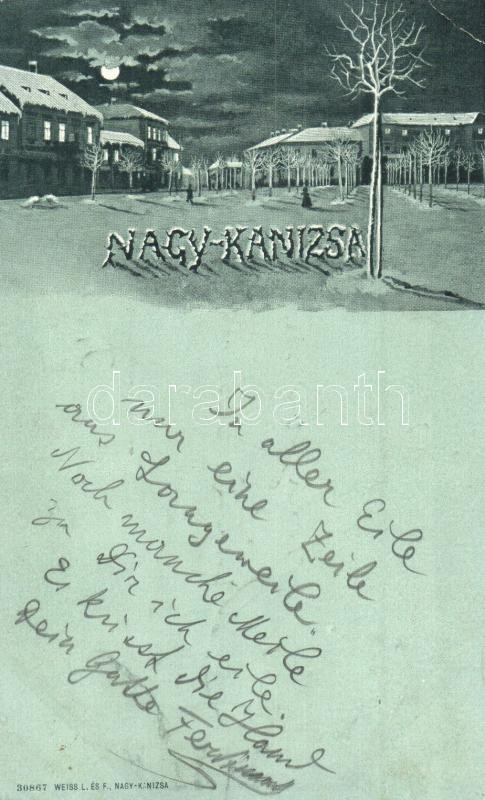 NAGY-KANIZSA
darabanth
In aller Eile
nur eine Zeile
aus "Langeweile"
Noch manche Meile
zu Dir ich eile.
Es küsst die Hand
Dein Gatte Ferdinand
30867 WEISS L. ÉS F., NAGY-KANIZSA